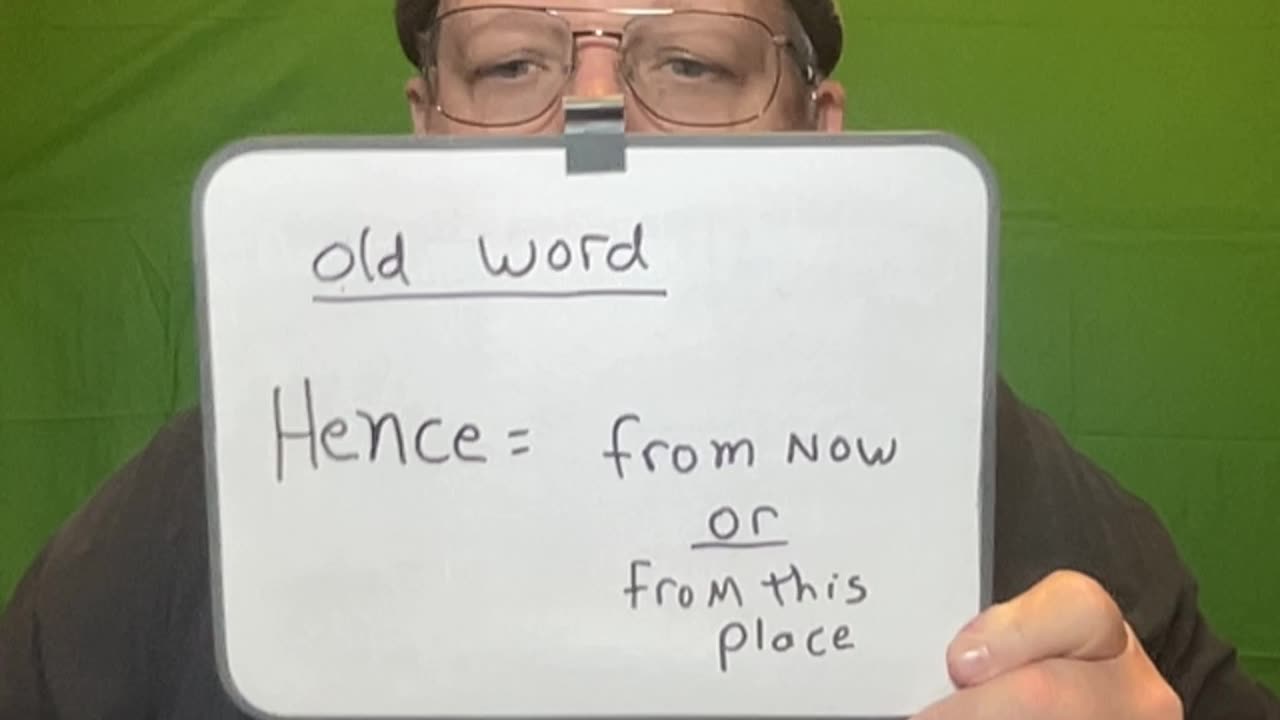 old word
Hence = from NOW
or
from this
place